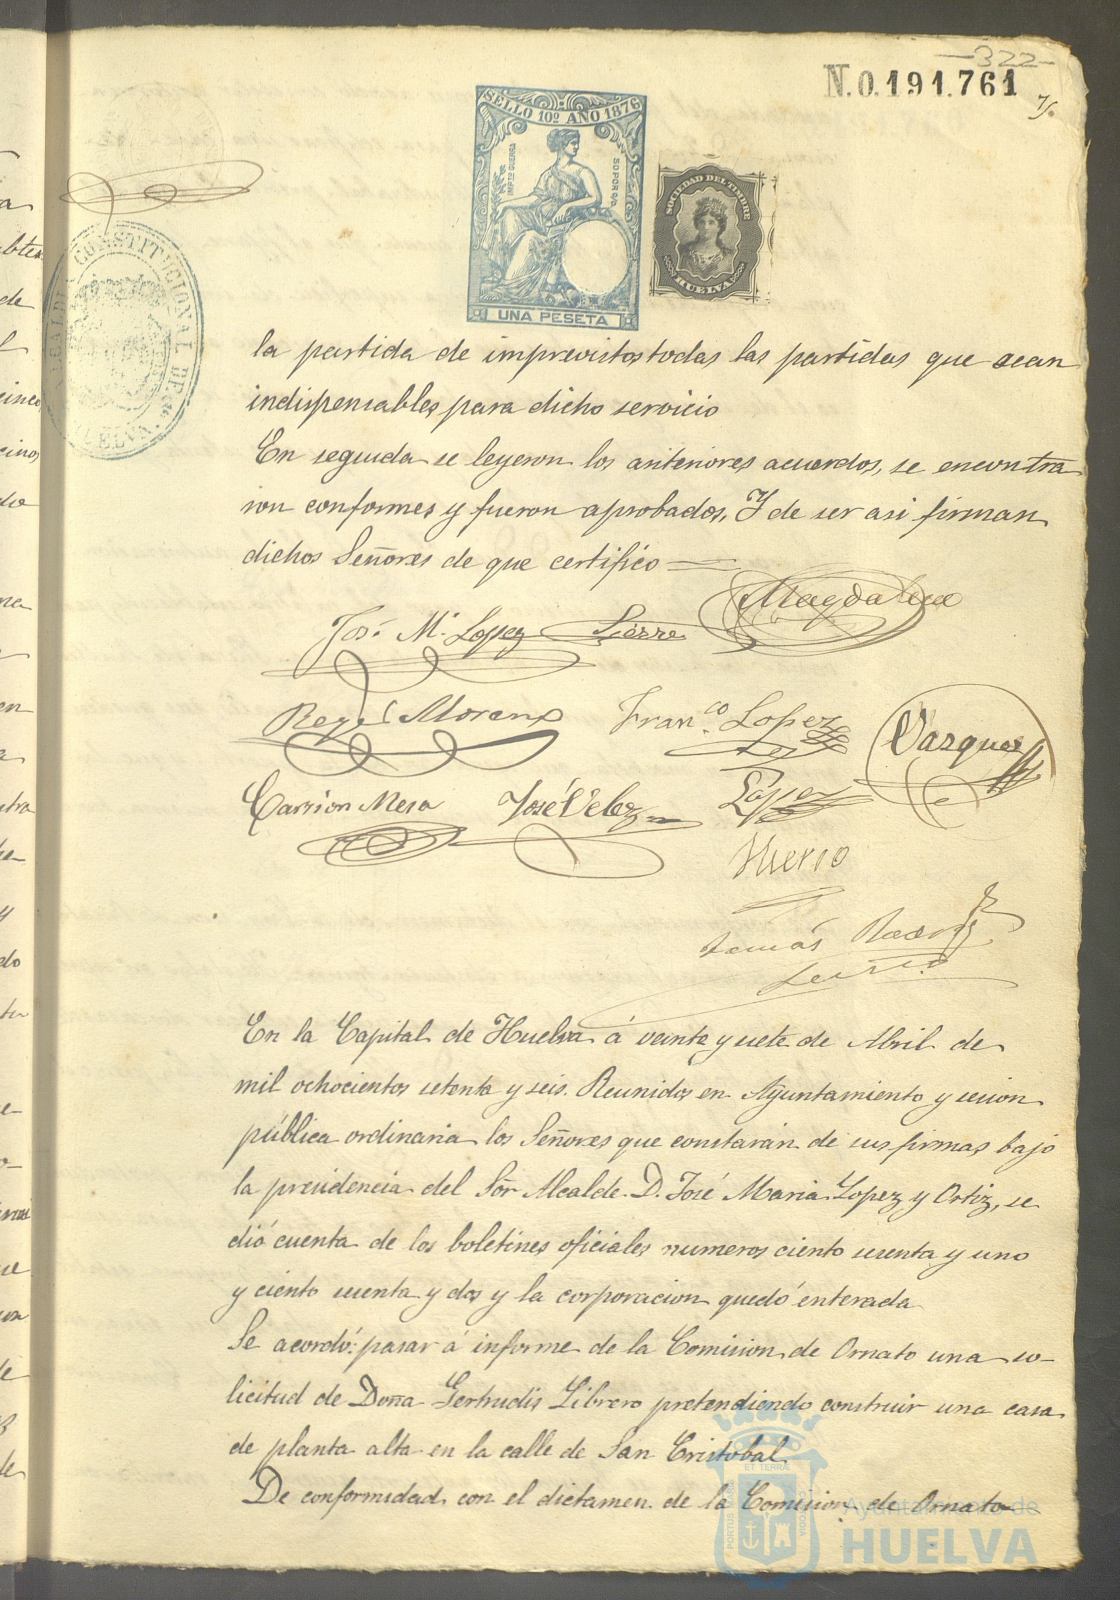 322
N.0.191.761
SELLO 10º AÑO 1876
IMPTO GUERRA
50 POR 0/0
UNA PESETA
SOCIEDAD DEL TIMBRE
HUELVA
ALCALDIA CONSTITUCIONAL DE HUELVA
la partida de imprevistos todas las partidas que sean
indispensables para dicho servicio
En seguida se leyeron los anteriores acuerdos, se encontra
ron conformes y fueron aprobados, Y de ser asi firman
dichos Señores de que certifico
José Mª Lopez Sierra Magdalena
Moreno Franco. Lopez Vazquez
Carrion Mesa José Velez Lopez
Hierro
Tomás
En la Capital de Huelva á veinte y siete de Abril de
mil ochocientos setenta y seis. Reunidos en Ayuntamiento y sesion
pública ordinaria los Señores que constarán de sus firmas bajo
la presidencia del Sõr Alcalde D. José Maria Lopez y Ortiz, se
dió cuenta de los boletines oficiales numeros ciento sesenta y uno
y ciento sesenta y dos y la corporacion quedó enterada
Se acordó: pasar á informe de la Comision de Ornato una so-
licitud de Doña Gertrudis Librero pretendiendo construir una casa
de planta alta en la calle de San Cristobal
De conformidad con el dictamen de la Comision de Ornato
PORTUS MARIS ET TERRAE CUSTODIA
Ayuntamiento de
HUELVA